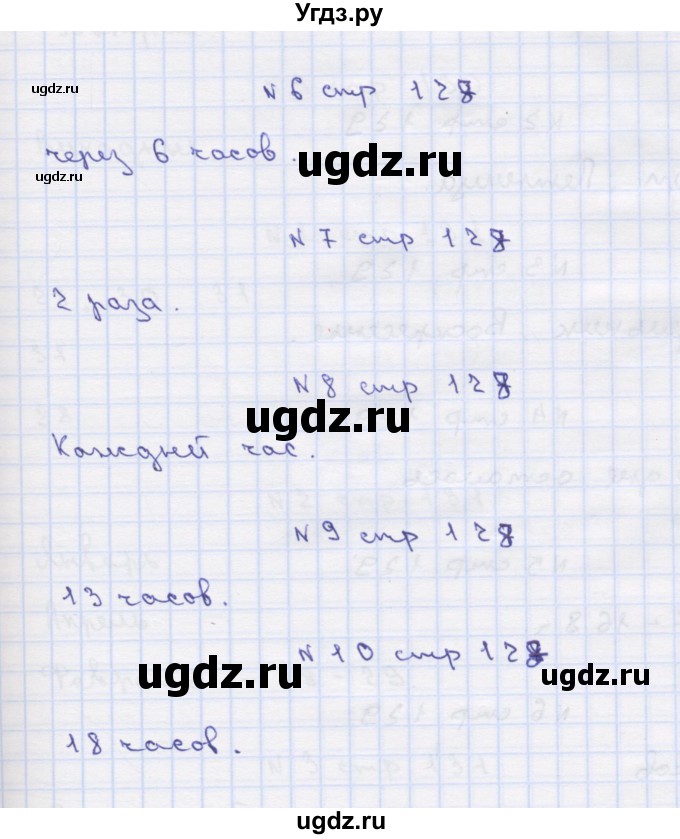 Угдз.ру
ugdz.ru
N 6 стр 128
через 6 часов.
ugdz.ru
ugdz.ru
N 7 стр 128
2 раза.
N 8 стр 128
ugdz.ru
Каждый час.
N 9 стр 128
13 часов.
N 10 стр 128
ugdz.ru
ugdz.ru
18 часов.
ugdz.ru